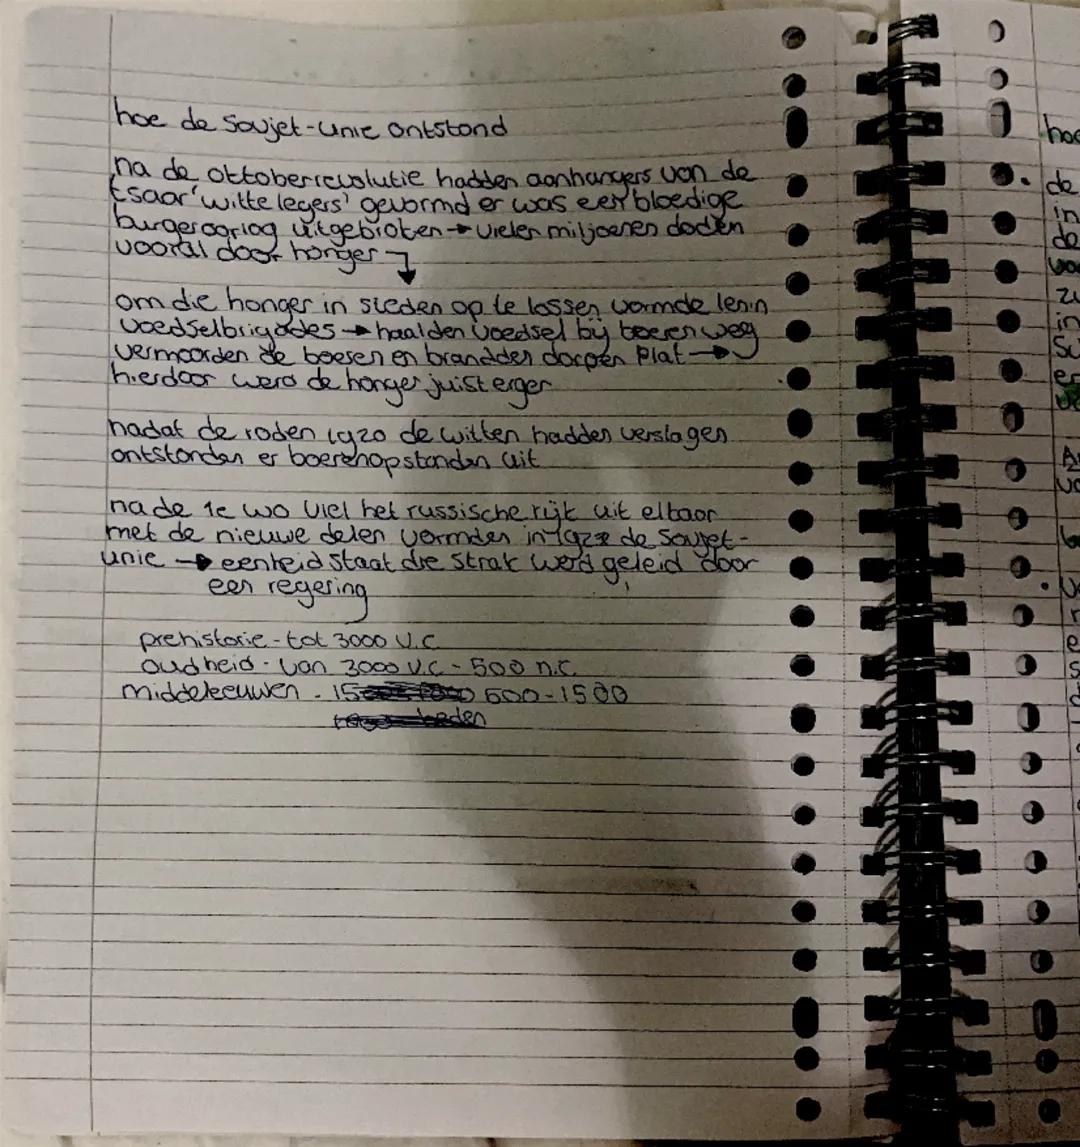 hoe de Sovjet-unie ontstond
na de oktoberrevolutie hadden aanhangers van de
tsaar 'witte legers' gevormd er was een bloedige
burgeroorlog uitgebroken → vielen miljoenen doden
vooral door honger
om die honger in steden op te lossen vormde lenin
voedselbrigades → haalden voedsel bij boeren weg
vermoorden de boeren en brandden dorpen plat →
hierdoor werd de honger juist erger
nadat de roden 1920 de witten hadden verslagen
ontstonden er boerenopstanden uit
na de 1e wo viel het russische rijk uit elkaar
met de nieuwe delen vormden in de Sovjet-
unie → eenheid staat die strak werd geleid door
een regering
prehistorie - tot 3000 v.c
oudheid - van 3000 v.c - 500 n.c.
middeleeuwen - 500 - 1500
hoe
de
in
de
zu
in